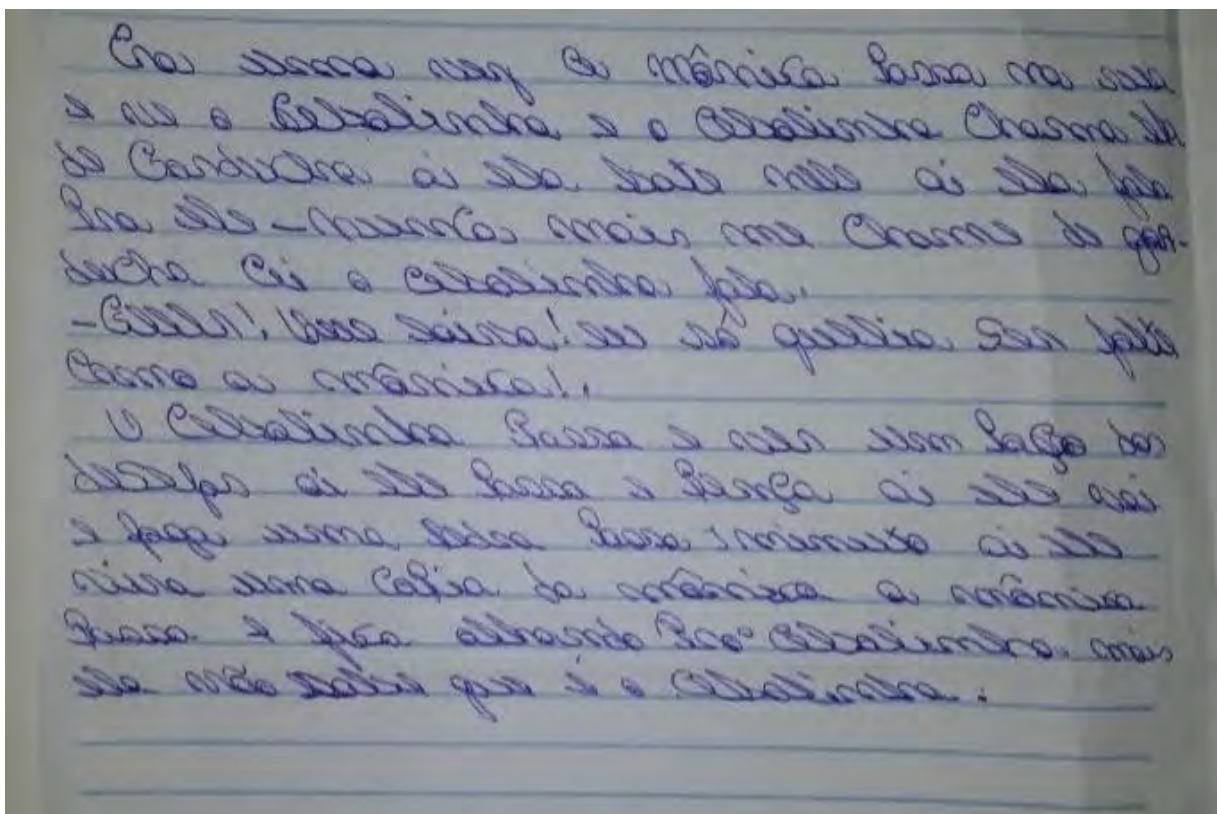 Era uma vez a mônica passa na rua
e ve o Cebolinha e o Cebolinha Chama ela
de Gorducha ai ela bate nele ai ela fala
Pra ele - nunca mais me Chame de gor-
ducha ai o cebolinha fala.
- eu só queria Ser forte
Como a mônica!.
O Cebolinha Passa e ver um Poço dos
desejos ai ele Passa e ai ele vai
e faz uma Para minuto ai ele
vira uma Copia da mônica a mônica
Passa e fica olhando Pro Cebolinha mais
ela não sabe que é o Cebolinha.